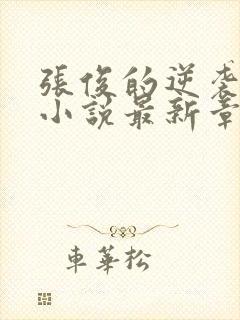 張俊的逆袭
小說最新章
車華松